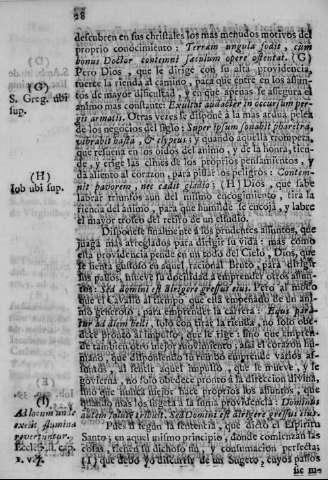 28
descubren en sus christales los mas menudos motivos del
proprio conocimiento: Terram ungula fodit, cum
bonus Doctor contemni sæculum opere ostentat. (G)
Pero Dios, que le dirige con su alta providencia,
fuerte la rienda al camino, para que entre en los assun-
tos de mayor dificultad, y en que apenas se assegura el
animo mas constante: Exultat audacter in occursum per-
git armatis. Otras vezes se dispone à la mas ardua pelea
de los negocios del siglo: Super ipsum sonabit pharetra,
vibrabit hasta, & clypeus; y quando aquella trompeta
que resuena en los oidos del animo, y de la honra, tien-
de, y erige las clines de los proprios pensamientos, y
dà aliento al corazon, para pisar los peligros: Contem-
nit pavorem, nec cedit gladio; (H) Dios, que sabe
labrar triunfos aun del mismo encogimiento, tira la
rienda del animo, para que humilde se encoja, y labre
el mayor trofeo del retiro de un estudio.
Disponese finalmente à los prudentes assuntos, que
juzga mas arreglados para dirigir su vida: mas como
esta providencia pende en un todo del Cielo, Dios, que
se sienta gustoso en aquel racional Bruto, para dirigir
sus passos, mueve su docilidad à emprender otros assun-
tos: Sed domini est dirigere gressus eius. Pero al modo
que el Cavallo al tiempo que està empeñado de un ani-
mo generoso, para emprender la carrera: Equus para-
tur ad diem belli, solo con tirar la rienda, no solo obe-
dece pronto al impulso, que le rige; sino que empren-
de tambien otro mejor movimiento; assi el corazon hu-
mano, que disponiendo su rumbo emprende varios as-
suntos, al sentir aquel impulso, que le mueve, y le
govierna, no solo obedece pronto à la direccion divina,
sino que nunca mejor hace proprios los assuntos, que
quando mas los sugeta à la suma providencia: Dominus
autem salutem tribuet. Sed Domini est dirigere gressus eius.
Pues si segun la sentencia, que dictò el Espiritu
Santo; en aquel mismo principio, donde comienzan las
cosas, tienen su dichoso fin, y consumacion perfecta;
(I) què debo yo discurrir de un Sugeto, cuyos passos
(G)
S. Greg. ubi
sup.
(H)
Iob ubi sup.
(I)
Ad locum unde
exeunt flumina
revertuntur.
Eccl. 1. cap.
1. v. 7.